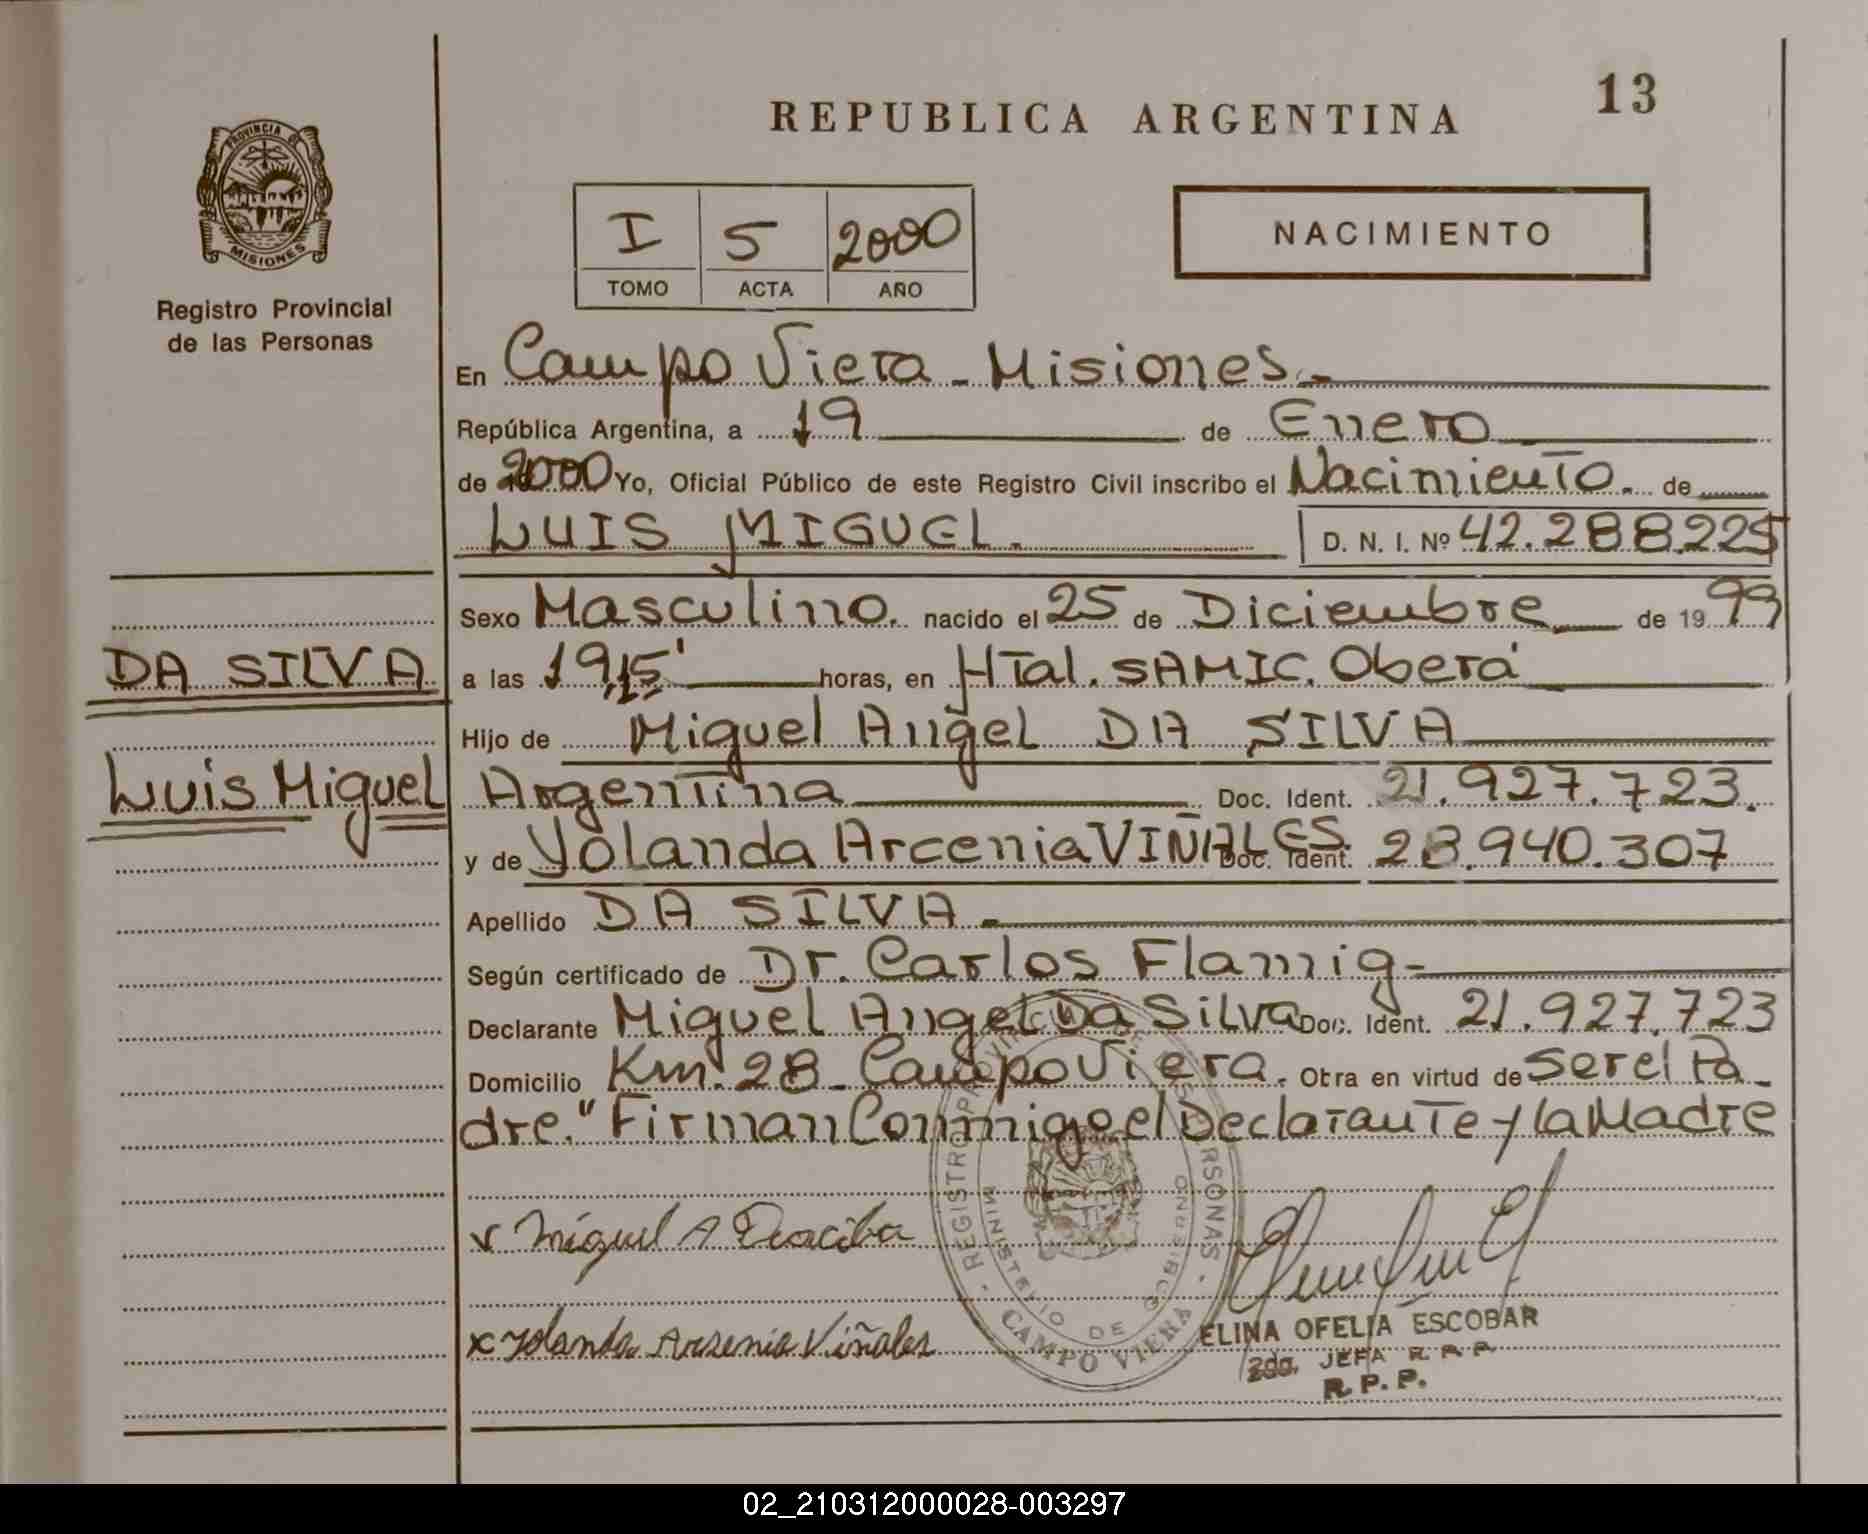 13
REPUBLICA ARGENTINA
PROVINCIA DE
MISIONES
Registro Provincial
de las Personas
I 5 2000
TOMO ACTA AÑO
NACIMIENTO
En Campo Viera - Misiones.-
República Argentina, a 19 de Enero
de 2000 Yo, Oficial Público de este Registro Civil inscribo el Nacimiento. de
LUIS MIGUEL. D. N. I. Nº 42.288.225
Sexo Masculino. nacido el 25 de Diciembre de 19 99
DA SILVA
a las 19,15' horas, en HTal. SAMIC. Oberá
Hijo de Miguel Angel DA SILVA
Luis Miguel
Argentina Doc. Ident. 21.927.723.
y de Yolanda Arcenia VIÑALES Doc. Ident. 28.940.307
Apellido DA SILVA.-
Según certificado de Dr. Carlos Flamig-
Declarante Miguel Angel Da Silva Doc. Ident. 21.927.723
Domicilio Km. 28 - Campo Viera. Otra en virtud de ser el Pa-
dre." Firman Conmigo el Declarante y la Madre
v Miguel A
x Yolanda Arsenia Viñales
REGISTRO PROVINCIAL DE LAS PERSONAS
MINISTERIO DE GOBIERNO
CAMPO VIERA
ELINA OFELIA ESCOBAR
2da. JEFA R. P. P.
R. P. P.
02_210312000028-003297